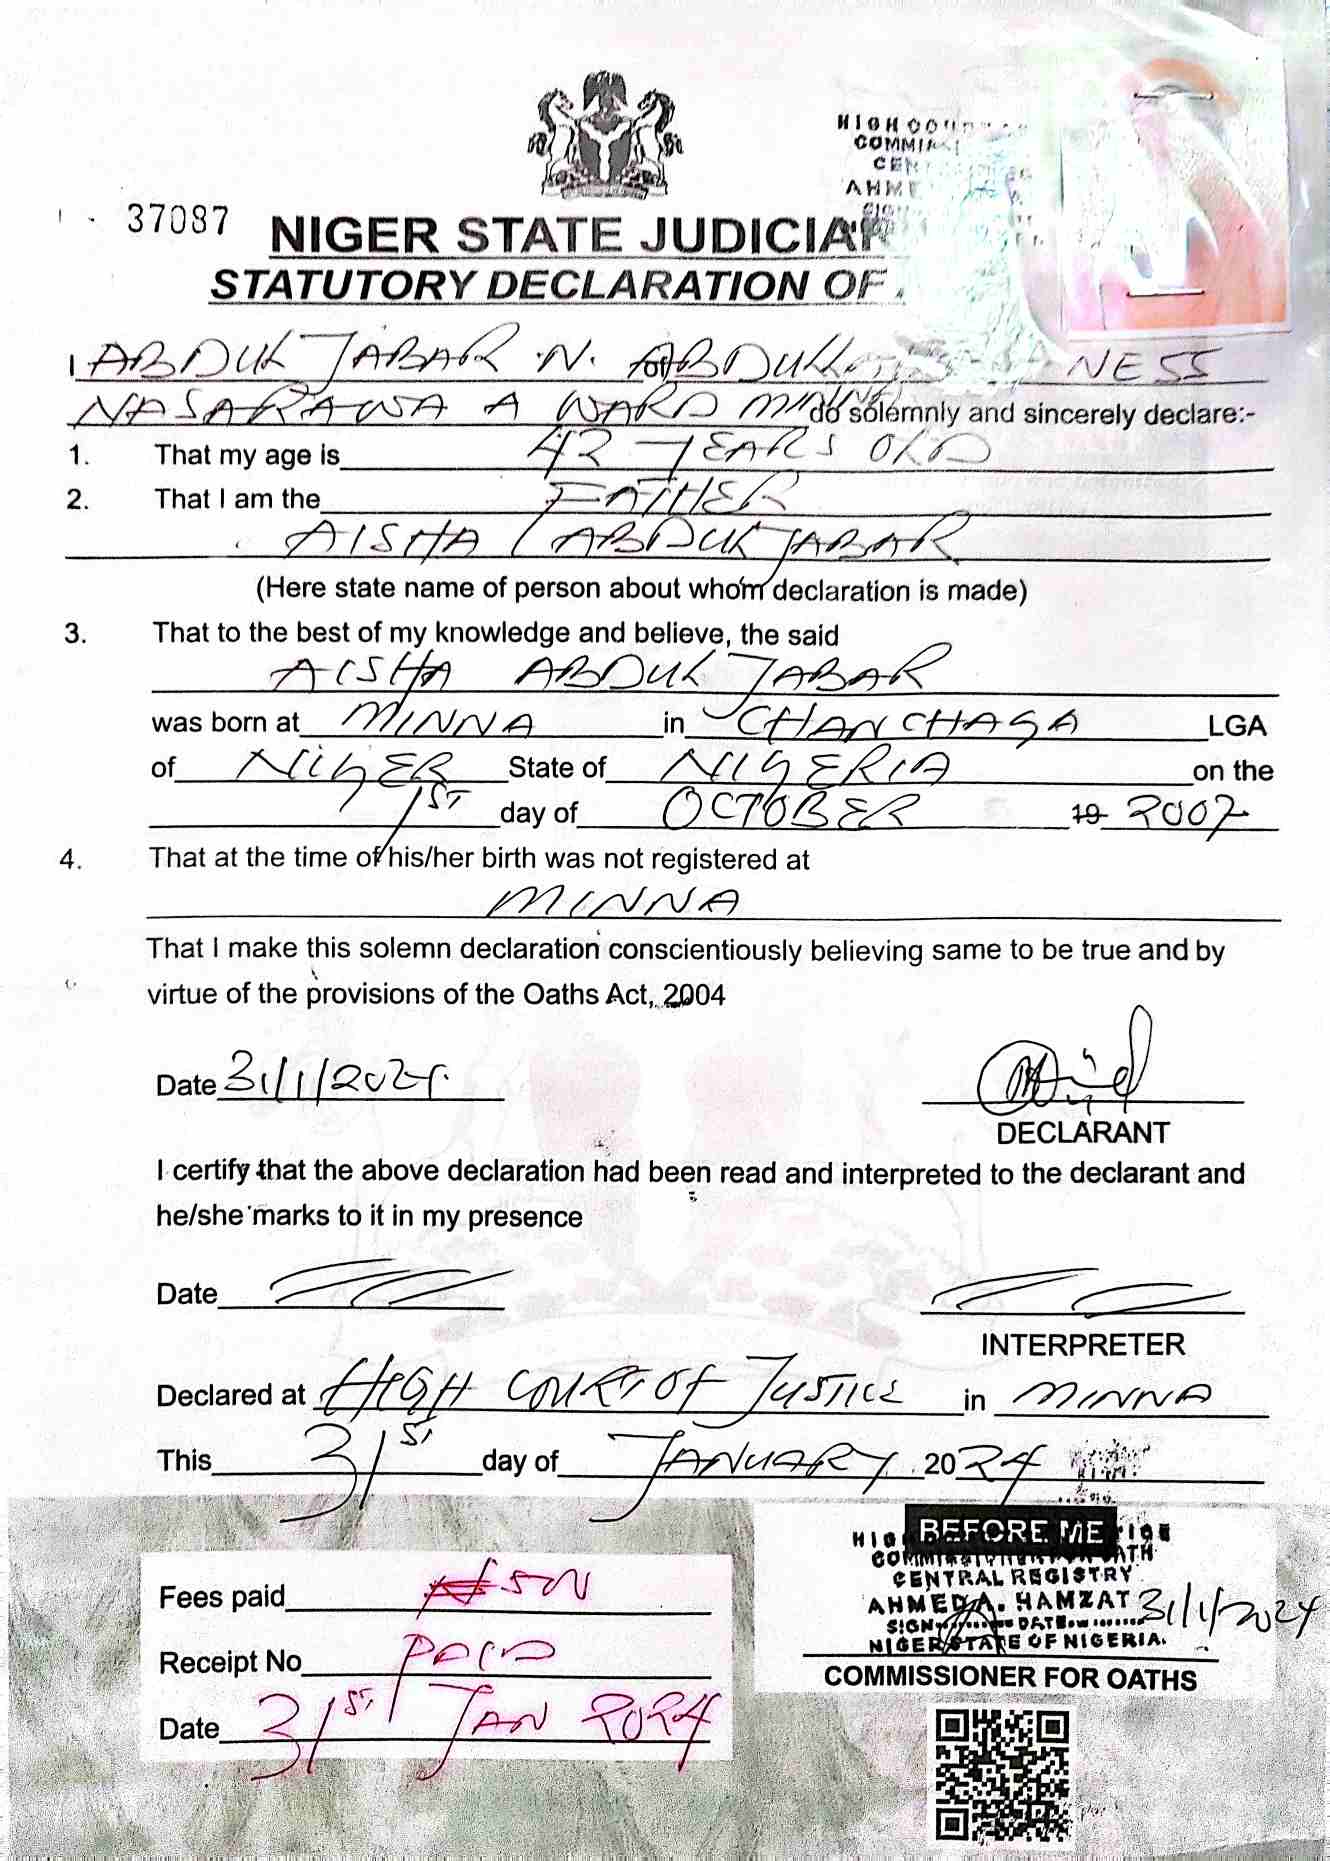 HIGH COU
COMMI
CEN
AHME
SIG
37087
NIGER STATE JUDICIAR
STATUTORY DECLARATION OF
I ABDUL JABAR N. of ABDULL NESS
NASARAWA A WARD MINNA do solemnly and sincerely declare:-
1. That my age is 42 YEARS OLD
2. That I am the FATHER
AISHA ABDUL JABAR
(Here state name of person about whom declaration is made)
3. That to the best of my knowledge and believe, the said
AISHA ABDUL JABAR
was born at MINNA in CHANCHAGA LGA
of NIGER State of NIGERIA on the
1ST day of OCTOBER 19 2007
4. That at the time of his/her birth was not registered at
MINNA
That I make this solemn declaration conscientiously believing same to be true and by
virtue of the provisions of the Oaths Act, 2004
Date 31/1/2024.
DECLARANT
I certify that the above declaration had been read and interpreted to the declarant and
he/she marks to it in my presence
Date
INTERPRETER
Declared at HIGH COURT OF JUSTICE in MINNA
This 31ST day of JANUARY 2024
BEFORE ME
COMMISSIONER FOR OATH
CENTRAL REGISTRY
AHMED A. HAMZAT 31/1/2024
SIGN DATE
NIGER STATE OF NIGERIA.
COMMISSIONER FOR OATHS
Fees paid ₦50N
Receipt No PAID
Date 31ST JAN 2024